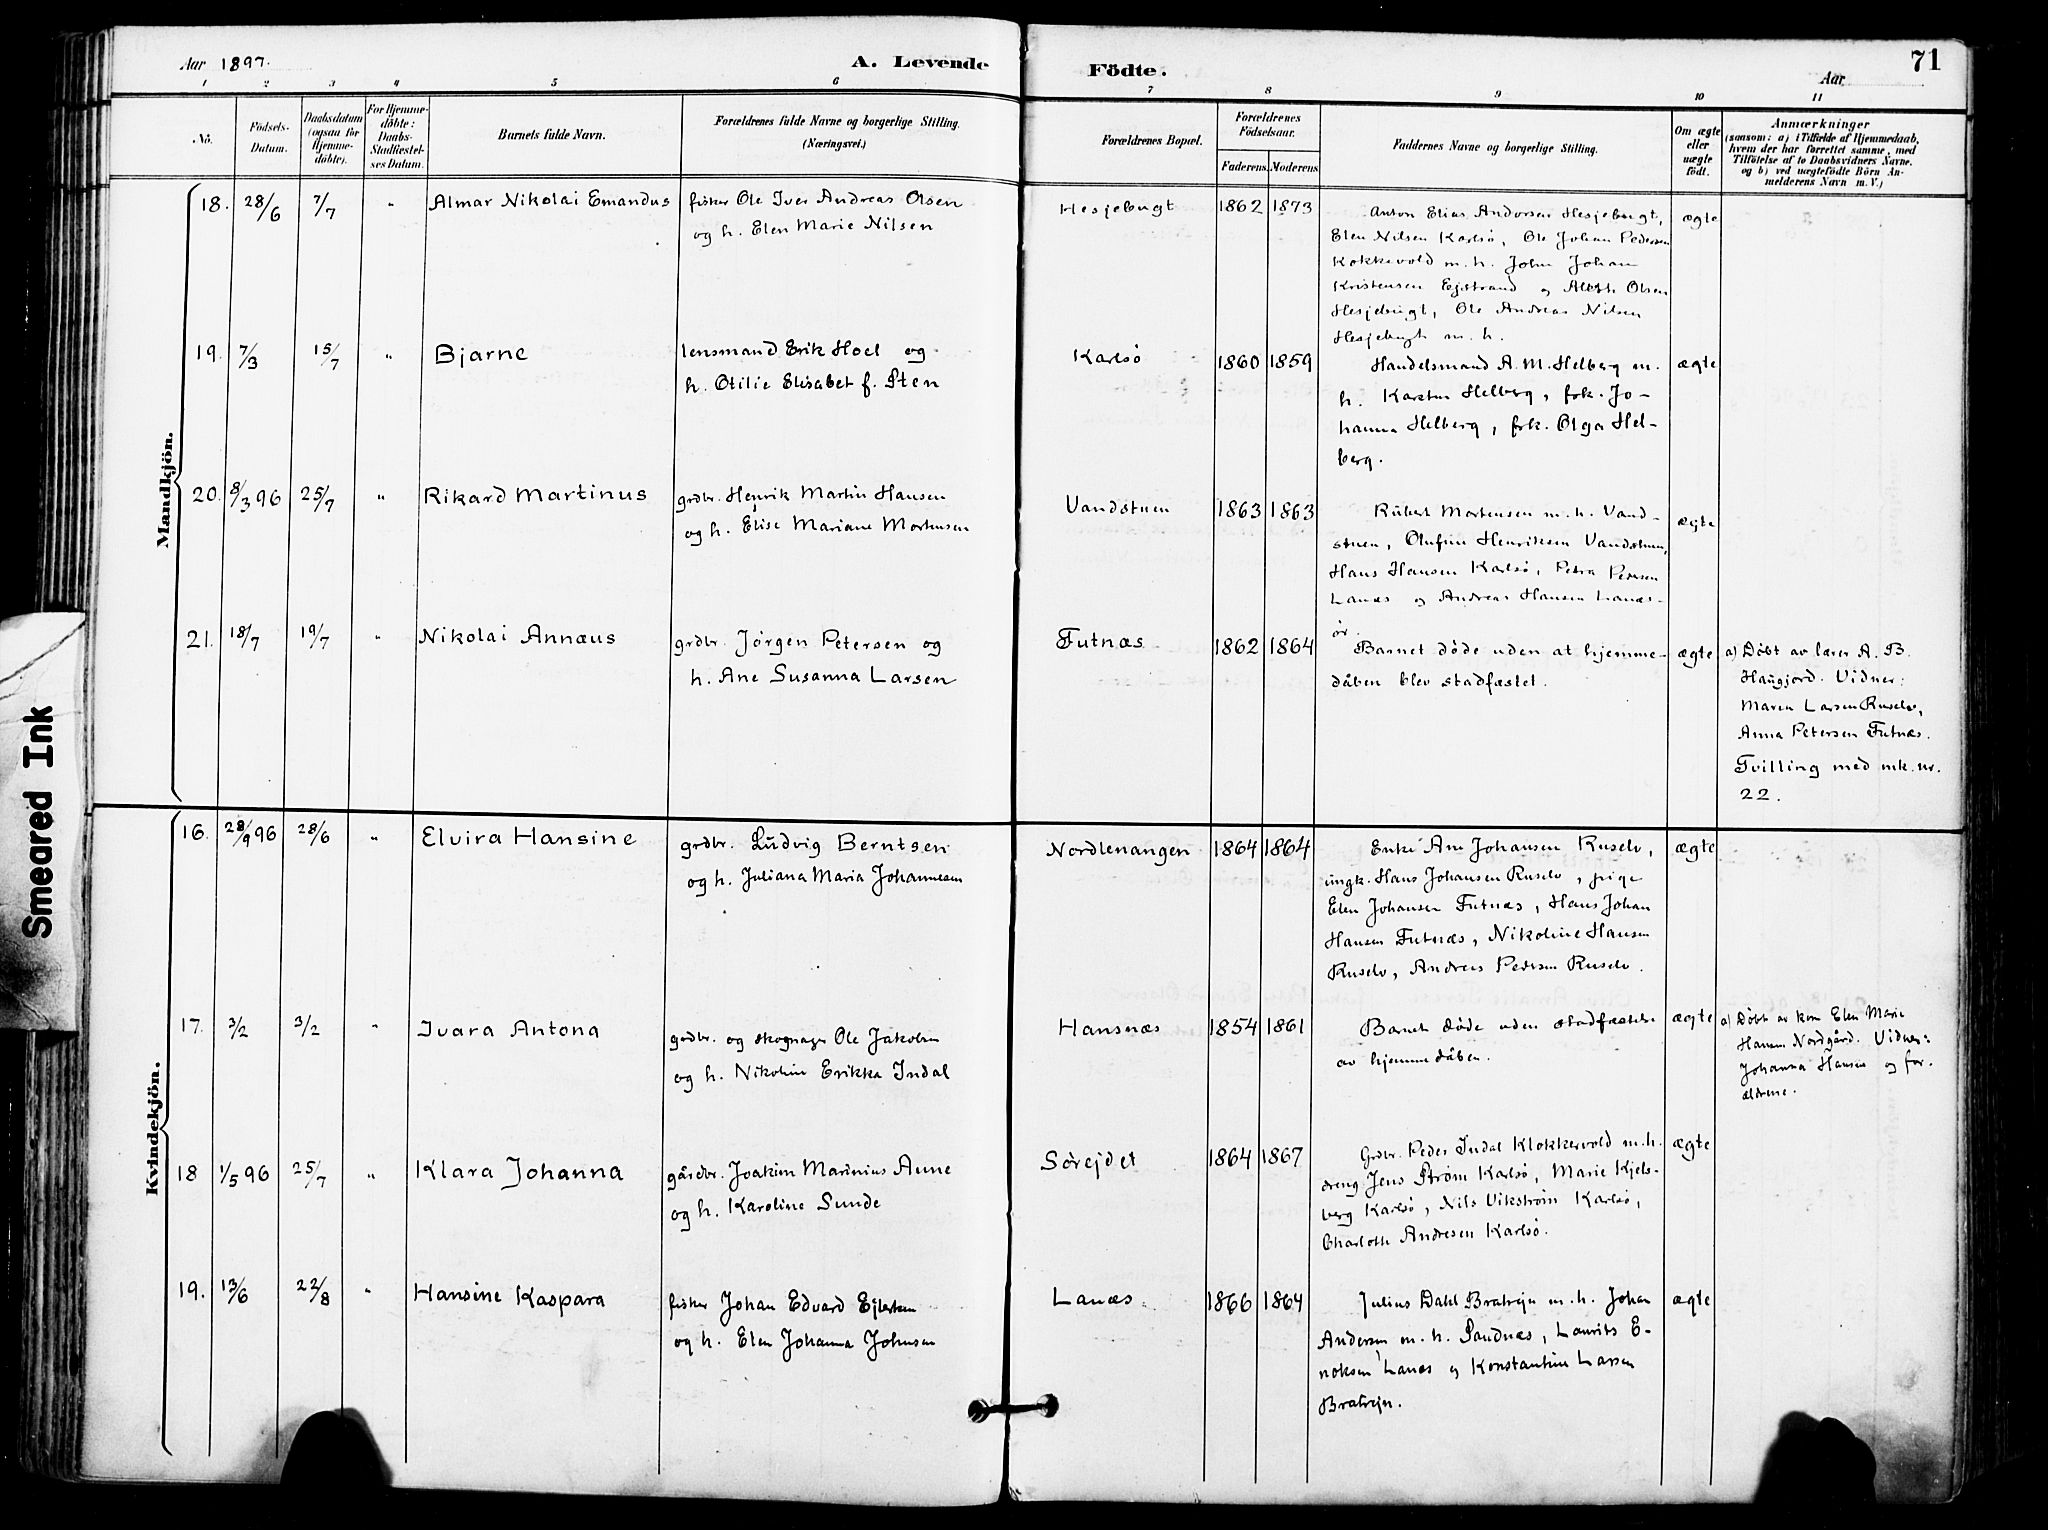 Aar 1897.
A. Levende
Födte.
Aar
71
1 2 3 4 5 6 7 8 9 10 11
No.
Födsels-
Datum.
Daabsdatum
(ogsaa for
Hjemme-
døbte).
For Hjemme-
döbte:
Daabs-
Stadfæstel-
ses Datum.
Barnets fulde Navn.
Forældrenes fulde Navne og borgerlige Stilling.
(Næringsvei.)
Forældrenes Bopæl.
Forældrenes
Födselsaar.
Faderens. Moderens.
Faddernes Navne og borgerlige Stilling.
Om ægte
eller
uægte
født.
Anmærkninger
(saasom: a) i Tilfælde af Hjemmedaab,
hvem der har forrettet samme, med
Tilföielse af to Daabsvidners Navne.
og b) ved uægtefödte Börn An-
melderens Navn m. V.)
Mandkjön.
18. 28/6 7/7 " Almar Nikolai Emandus
fisker Ole Iver Andreas Olsen
og h. Elen Marie Nilsen
Hesjebugt 1862 1873
Anton Elias Andersen Hesjebugt,
Elen Nilsen Karlsö, Ole Johan Pedersen
Kokkevold m. h. John Johan
Kristensen Ejdstrand og Aleth Olsen
Hesjebugt, Ole Andreas Nilsen
Hesjebugt m. h.
ægte
19. 7/3 15/7 " Bjarne
lensmand Erik Hoel og
h. Otilie Elisabet f. Sten
Karlsö 1860 1859
Handelsmand A. M. Helberg m.
h. Karsten Helberg, frk. Jo-
hanna Helberg, frk. Olga Hel-
berg.
ægte
20. 8/3 96 25/7 " Rikard Martinus
grdbr. Henrik Martin Hansen
og h. Elise Mariane Mortensen
Vandstuen 1863 1863
Rubert Mortensen m. h. Vand-
stuen, Olufine Henriksen Vandstuen,
Hans Hansen Karlsö, Petra Petersen
Lanæs og Andreas Hansen Lanæs-
ör.
ægte
21. 18/7 19/7 " Nikolai Annæus
grdbr. Jörgen Petersen og
h. Ane Susanna Larsen
Futnæs 1862 1864
Barnet döde uden at hjemme-
dåben blev stadfæstet.
ægte
a) Döbt av lærer A. B.
Haugjord. Vidner:
Maren Larsen Ruselv,
Anna Petersen Futnæs.
Tvilling med mk. nr.
22.
Kvindekjön.
16. 28/9 96 28/6 " Elvira Hansine
grdbr. Ludvig Berntsen
og h. Juliana Maria Johannesen
Nordlenangen 1864 1864
Enke Ane Johansen Ruselv,
ungk. Hans Johansen Ruselv, pige
Elen Johansen Futnæs, Hans Johan
Hansen Futnæs, Nikoline Hansen
Ruselv, Andreas Pedersen Ruselv.
ægte
17. 3/2 3/2 " Ivara Antona
grdbr. og skognager Ole Jakobsen
og h. Nikoline Erikka Indal
Hansnæs 1854 1861
Barnet döde uden stadfæstelse
av hjemmedåben.
ægte
a) Döbt av kone Elen Marie
Hansen Nordgård. Vidner:
Johanna Hansen og for-
ældrene.
18 1/5 96 25/7 " Klara Johanna
gårdbr. Joakim Marinius Aune
og h. Karoline Sunde
Sörejdet 1864 1867
Grdbr. Peder Indal Klokkervold m.h.
dreng Jens Ström Karlsö, Marie Kjels-
berg Karlsö, Nils Vikström Karlsö,
Charlotte Andresen Karlsö.
ægte
19. 13/6 22/8 " Hansine Kaspara
fisker Johan Edvard Ejlertsen
og h. Elen Johanna Johnsen
Lanæs 1866 1864
Julius Dahl Bratrejn m. h. Johan
Andersen m. h. Sandnæs, Laurits E-
noksen Lanæs og Konstantine Larsen
Bratrejn.
ægte
Smeared Ink